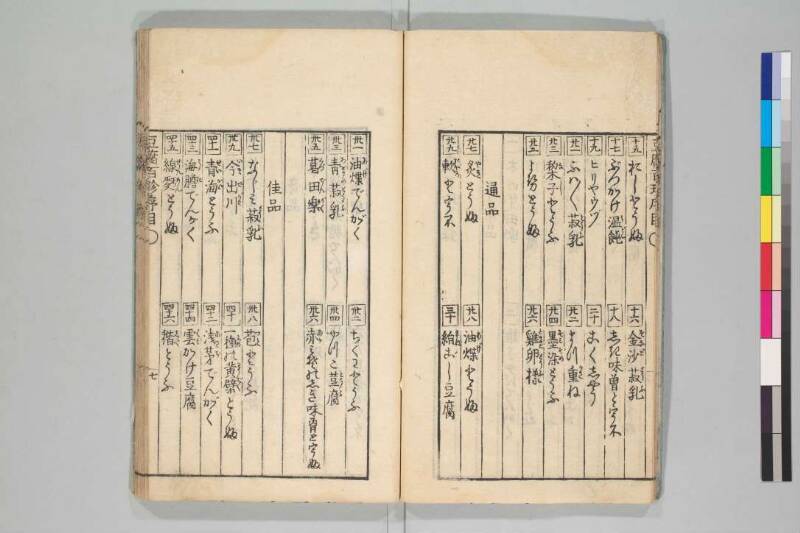 豆腐百珍序目
十五 おしとうふ 十六 金沙菽乳
十七 ぶつかけ温飩 十八 しき味噌とうふ
十九 ヒリヤウヅ 二十 こくしやう
廿一 ふはふは菽乳 廿二 まつ重ね
廿三 梨子とうふ 廿四 墨染とうふ
廿五 とうふ 廿六 鶏卵様
通品
廿七 炙とうふ 廿八 油煠とうふ
廿九 軟とうふ 三十 絹ごし豆腐
卅一 油煠でんがく 卅二 ちくわとうふ
卅三 青菽乳 卅四 やつこ豆腐
卅五 葛田楽 卅六 赤みそのしき味噌とうふ
佳品
卅七 なじみ菽乳 卅八 苞とうふ
卅九 今出川 四十 一種の黄檗とうふ
四十一 青海とうふ 四十二 浅茅でんがく
四十三 海胆でんがく 四十四 雲かけ豆腐
四十五 線麺とうふ 四十六 稭とうふ
豆腐百珍序目 七